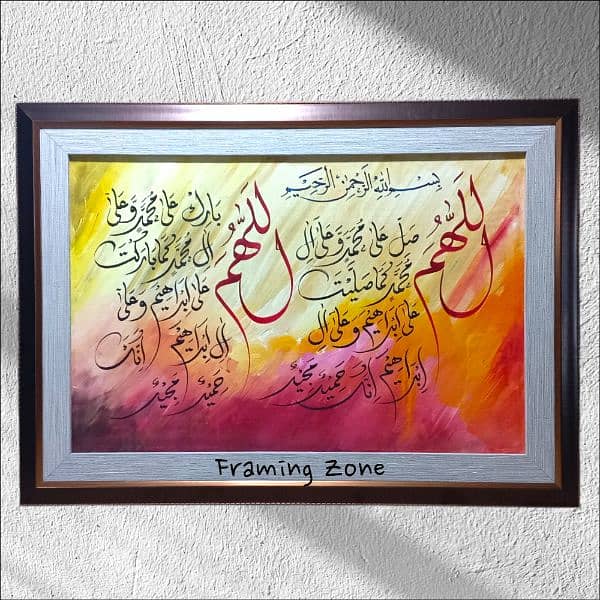 بِسْمِ اللهِ الرَّحْمٰنِ الرَّحِيْمِ
اَللّٰهُمَّ صَلِّ عَلٰى مُحَمَّدٍ وَّعَلٰى اٰلِ
مُحَمَّدٍ كَمَا صَلَّيْتَ
عَلٰى اِبْرَاهِيْمَ وَعَلٰى اٰلِ
اِبْرَاهِيْمَ اِنَّكَ حَمِيْدٌ مَّجِيْدٌ
اَللّٰهُمَّ بَارِكْ عَلٰى مُحَمَّدٍ وَّعَلٰى
اٰلِ مُحَمَّدٍ كَمَا بَارَكْتَ
عَلٰى اِبْرَاهِيْمَ وَعَلٰى
اٰلِ اِبْرَاهِيْمَ اِنَّكَ
حَمِيْدٌ مَّجِيْدٌ
Framing Zone